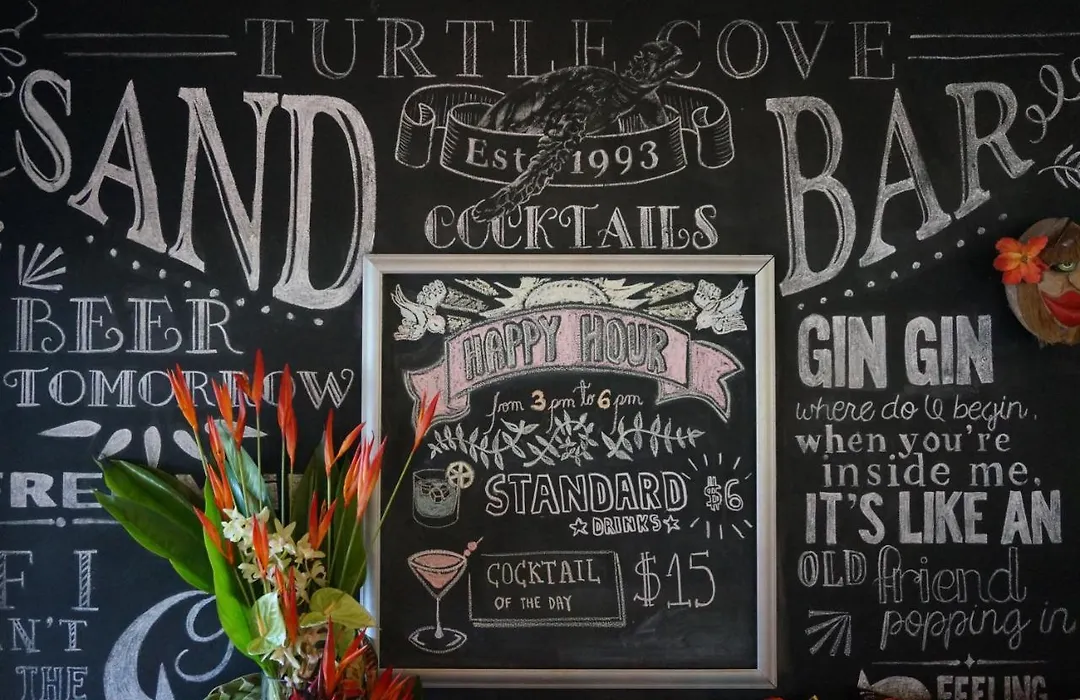 TURTLE COVE
SAND BAR
Est 1993
COCKTAILS
BEER
TOMORROW
FRE
FI
N'T
THE
HAPPY HOUR
from 3pm to 6pm
STANDARD $6
DRINKS
COCKTAIL $15
OF THE DAY
GIN GIN
where do I begin,
when you're
inside me,
IT'S LIKE AN
OLD friend
popping in
FEELING